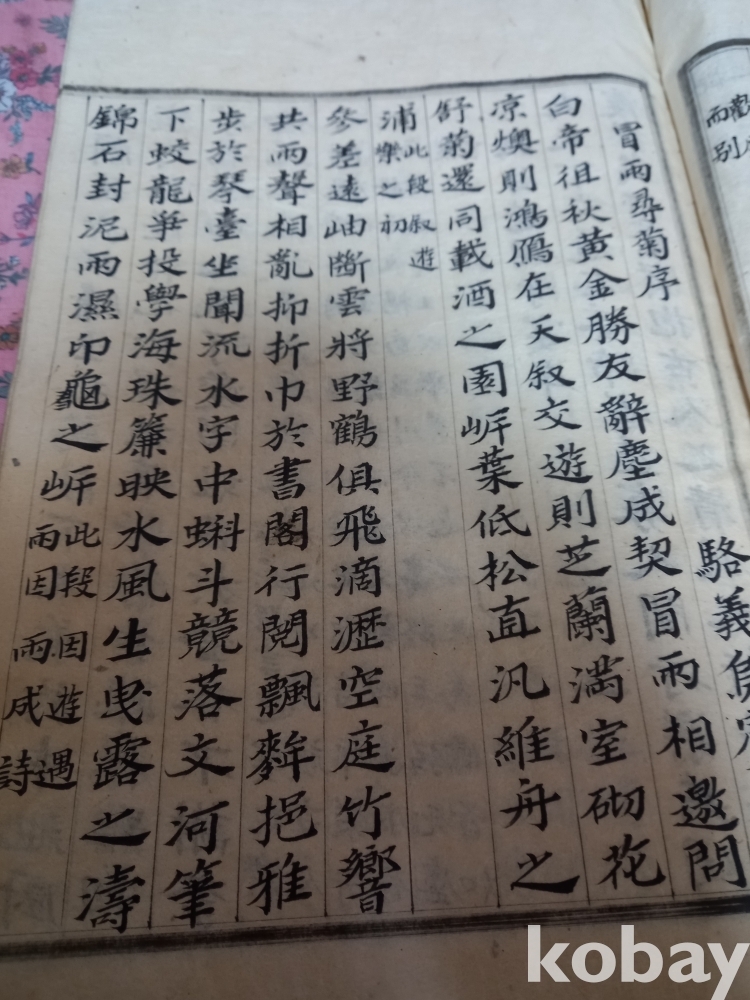 而別
冒雨尋菊序 駱義烏
白帝徂秋黃金勝友辭塵成契冒雨相邀問
凉燠則鴻鴈在天叙交遊則芝蘭滿室砌花
舒菊還同載酒之園岸葉低松直汎維舟之
浦
此段叙遊
樂之初
參差遠岫斷雲將野鶴俱飛滴瀝空庭竹響
共雨聲相亂抑折巾於書閣行閱飄麰挹雅
步於琴臺坐聞流水字中蝌斗競落文河筆
下蛟龍爭投學海珠簾映水風生曳露之濤
錦石封泥雨濕印龜之岸
此段因遊遇
雨因雨成詩
kobay